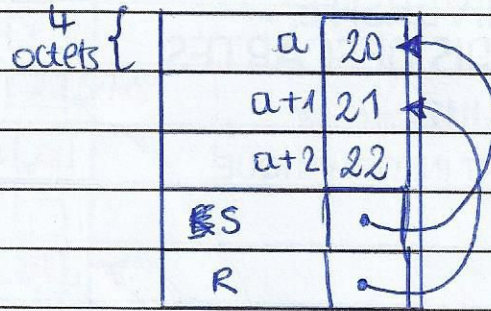 4
octets { a 20
a+1 21
a+2 22
S
R